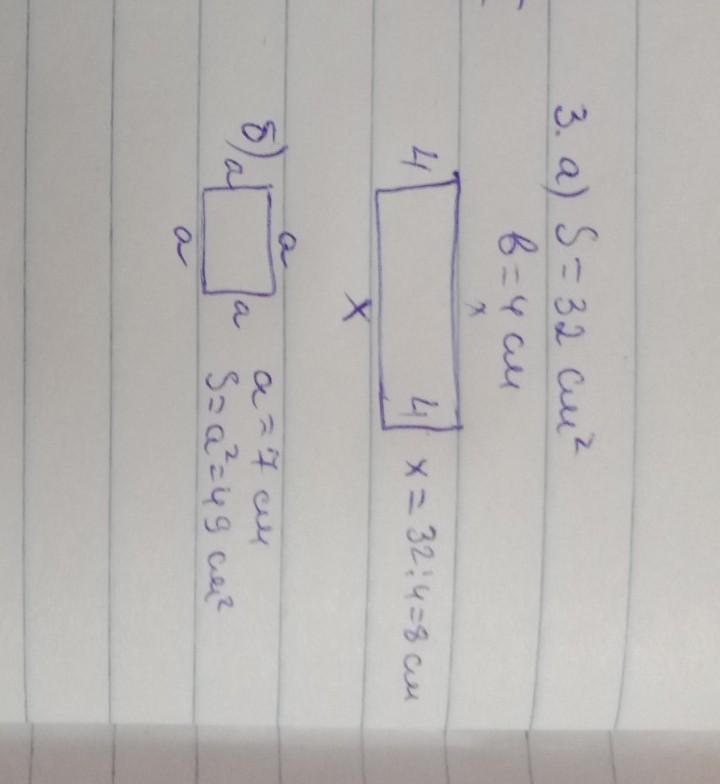 3. а) S = 32 см²
в = 4 см
x
4
4
x = 32 : 4 = 8 см
x
б)
a
a
a
a
a = 7 см
S = a² = 49 см²